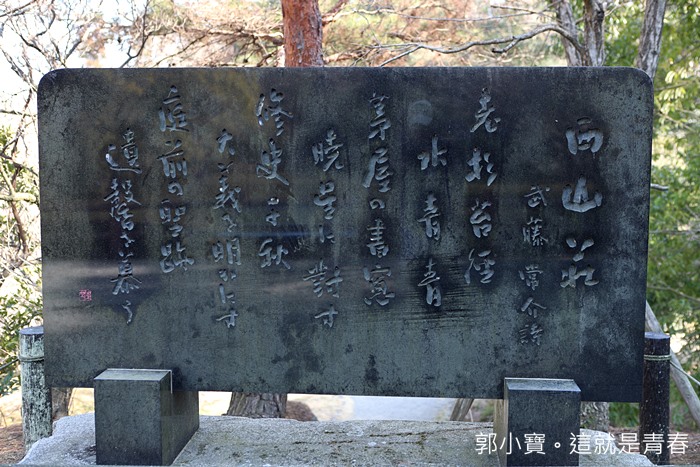 西山荘
武藤常介詩
老杉苔径
水青青
茅屋の書窓
暁星に對す
修史千秋
大義を明かにす
庭前の聖跡
遺馨を慕う
郭小寶。這就是青春